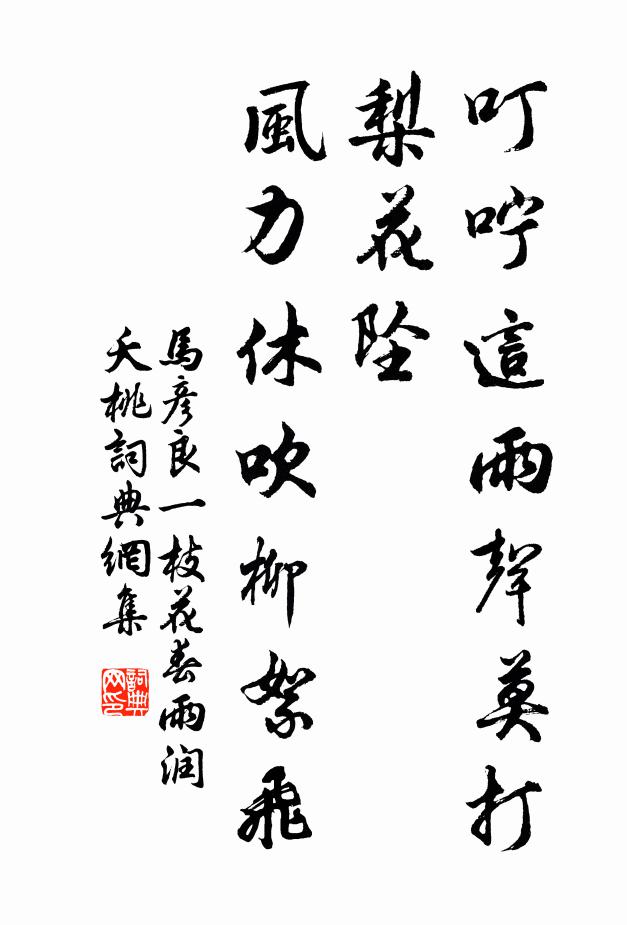 叮咛這雨聲莫打
梨花坠
風力休吹柳絮飛
馬彦良一枝花春雨润
夭桃詞典網集
詞典网印